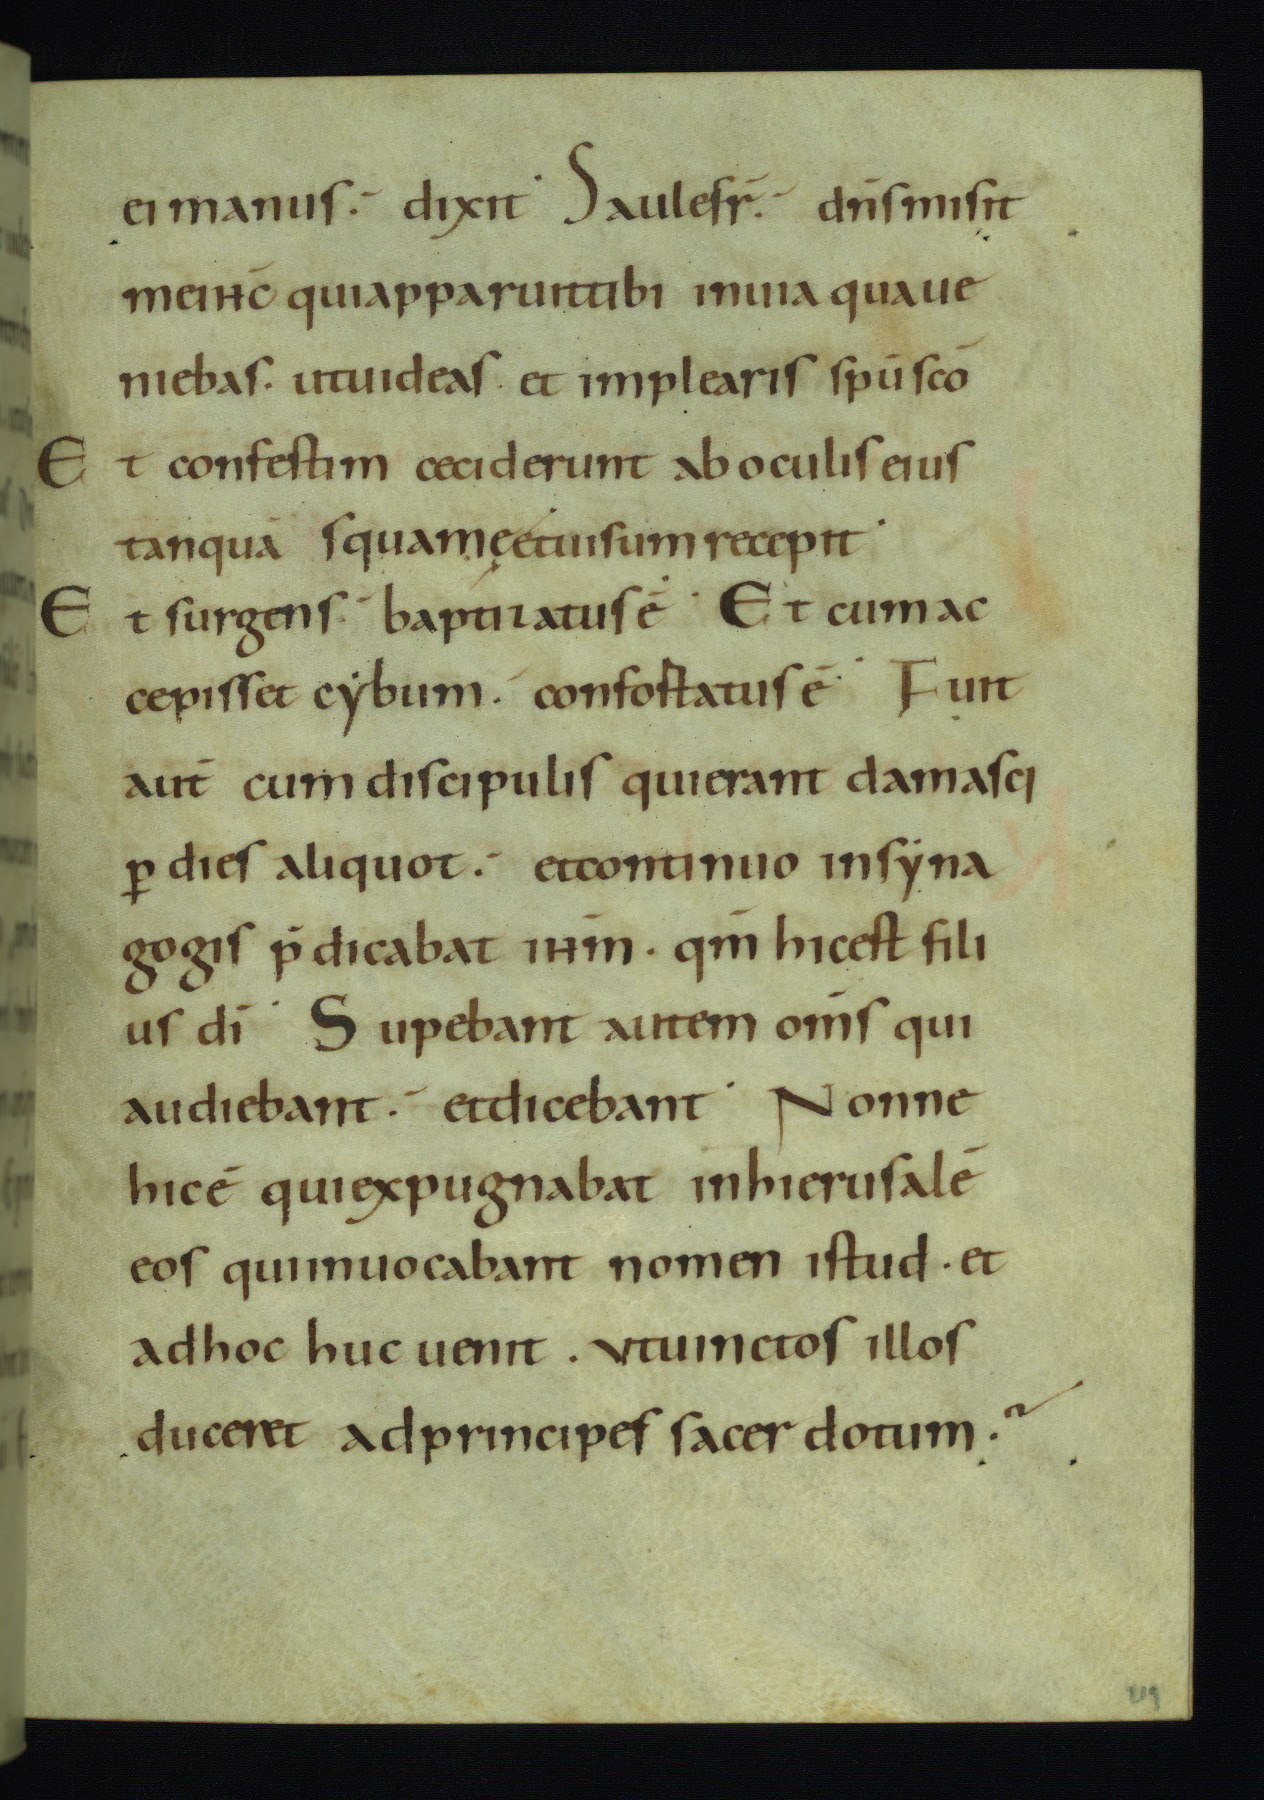 ei manus·̄ dixit· Saule fr̄·̄ dn̄s misit
me ihc̄ qui apparuit tibi in uia qua ue
niebas. ut uideas. et implearis spū sc̄o
Et confestim ceciderunt ab oculis eius
tanquā squamę et uisum recepit·
Et surgens·̄ baptizatus ē· Et cum ac
cepisset cẏbum.́ confortatus ē· Fuit
aut̄ cum discipulis qui erant damasci
ꝑ dies aliquot·̄ et continuo in sẏna
gogis p̄dicabat ihm̄. qm̄ hic est fili
us dī· Stupebant autem om̄s qui
audiebant·̄ et dicebant· Nonne
hic ē qui expugnabat in hierusalē
eos qui inuocabant nomen istud. et
ad hoc huc uenit. ut uinctos illos
duceret ad principes sacerdotum.?
219